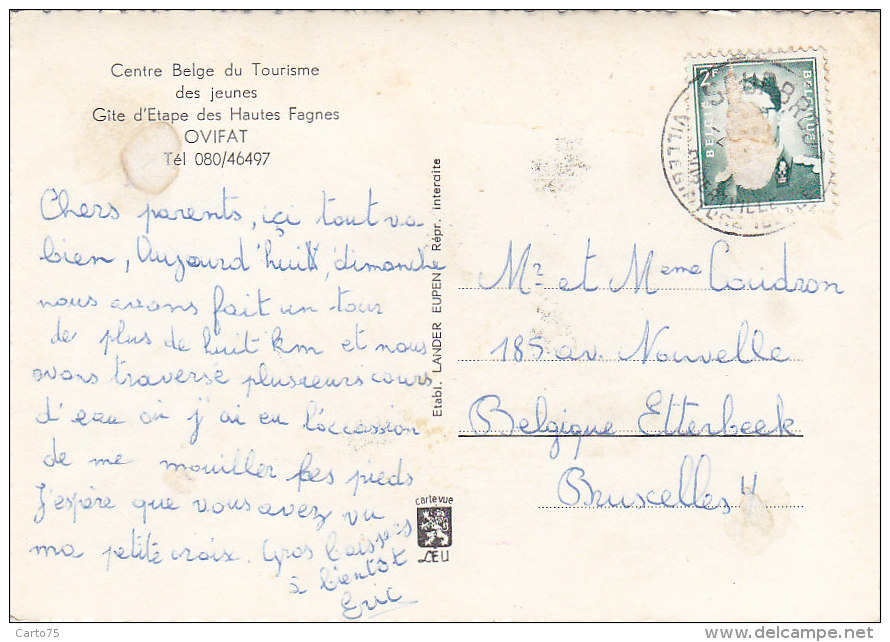 Centre Belge du Tourisme
des jeunes
Gîte d'Etape des Hautes Fagnes
OVIFAT
Tél 080/46497
Chers parents, içi tout va
bien, Aujourd'huit, dimanche
nous avons fait un tour
de plus de huit km et nous
avons traversé plusieurs cours
d'eau où j'ai eu l'occasion
de me mouiller les pieds
J'espère que vous avez vu
ma petite croix. Gros baisers
à bientôt
Eric
Etabl. LANDER EUPEN Répr. interdite
carte vue
LEU
2F
BELGIE
BELGIQUE
Mr et Meme Coudron
185 av. Nouvelle
Belgique Etterbeek
Bruxelles 4
Carto75
www.delcampe.net